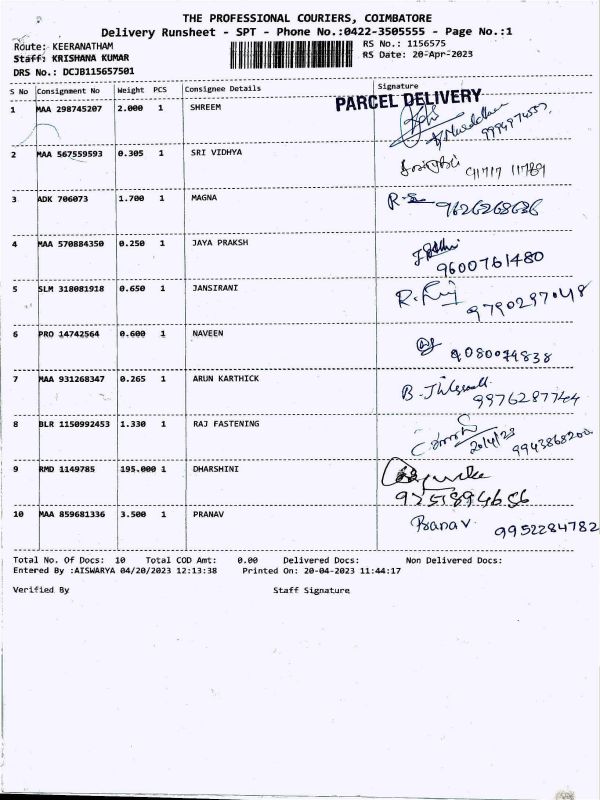 THE PROFESSIONAL COURIERS, COIMBATORE
Delivery Runsheet - SPT - Phone No.:0422-3505555 - Page No.:1
Route: KEERANATHAM RS No.: 1156575
Staff: KRISHANA KUMAR RS Date: 20-Apr-2023
DRS No.: DCJB115657501
S No Consignment No Weight PCS Consignee Details Signature
PARCEL DELIVERY
1 MAA 298745207 2.000 1 SHREEM
2 MAA 567559593 0.305 1 SRI VIDHYA 91717 11789
3 ADK 706073 1.700 1 MAGNA 9626268686
4 MAA 570884350 0.250 1 JAYA PRAKSH 9600761480
5 SLM 318081918 0.650 1 JANSIRANI 9790297048
6 PRO 14742564 0.600 1 NAVEEN
7 MAA 931268347 0.265 1 ARUN KARTHICK 9976287744
8 BLR 1150992453 1.330 1 RAJ FASTENING 20/4/23 9943868200
9 RMD 1149785 195.000 1 DHARSHINI
10 MAA 859681336 3.500 1 PRANAV Pranav 9952284782
Total No. Of Docs: 10 Total COD Amt: 0.00 Delivered Docs: Non Delivered Docs:
Entered By :AISWARYA 04/20/2023 12:13:38 Printed On: 20-04-2023 11:44:17
Verified By Staff Signature